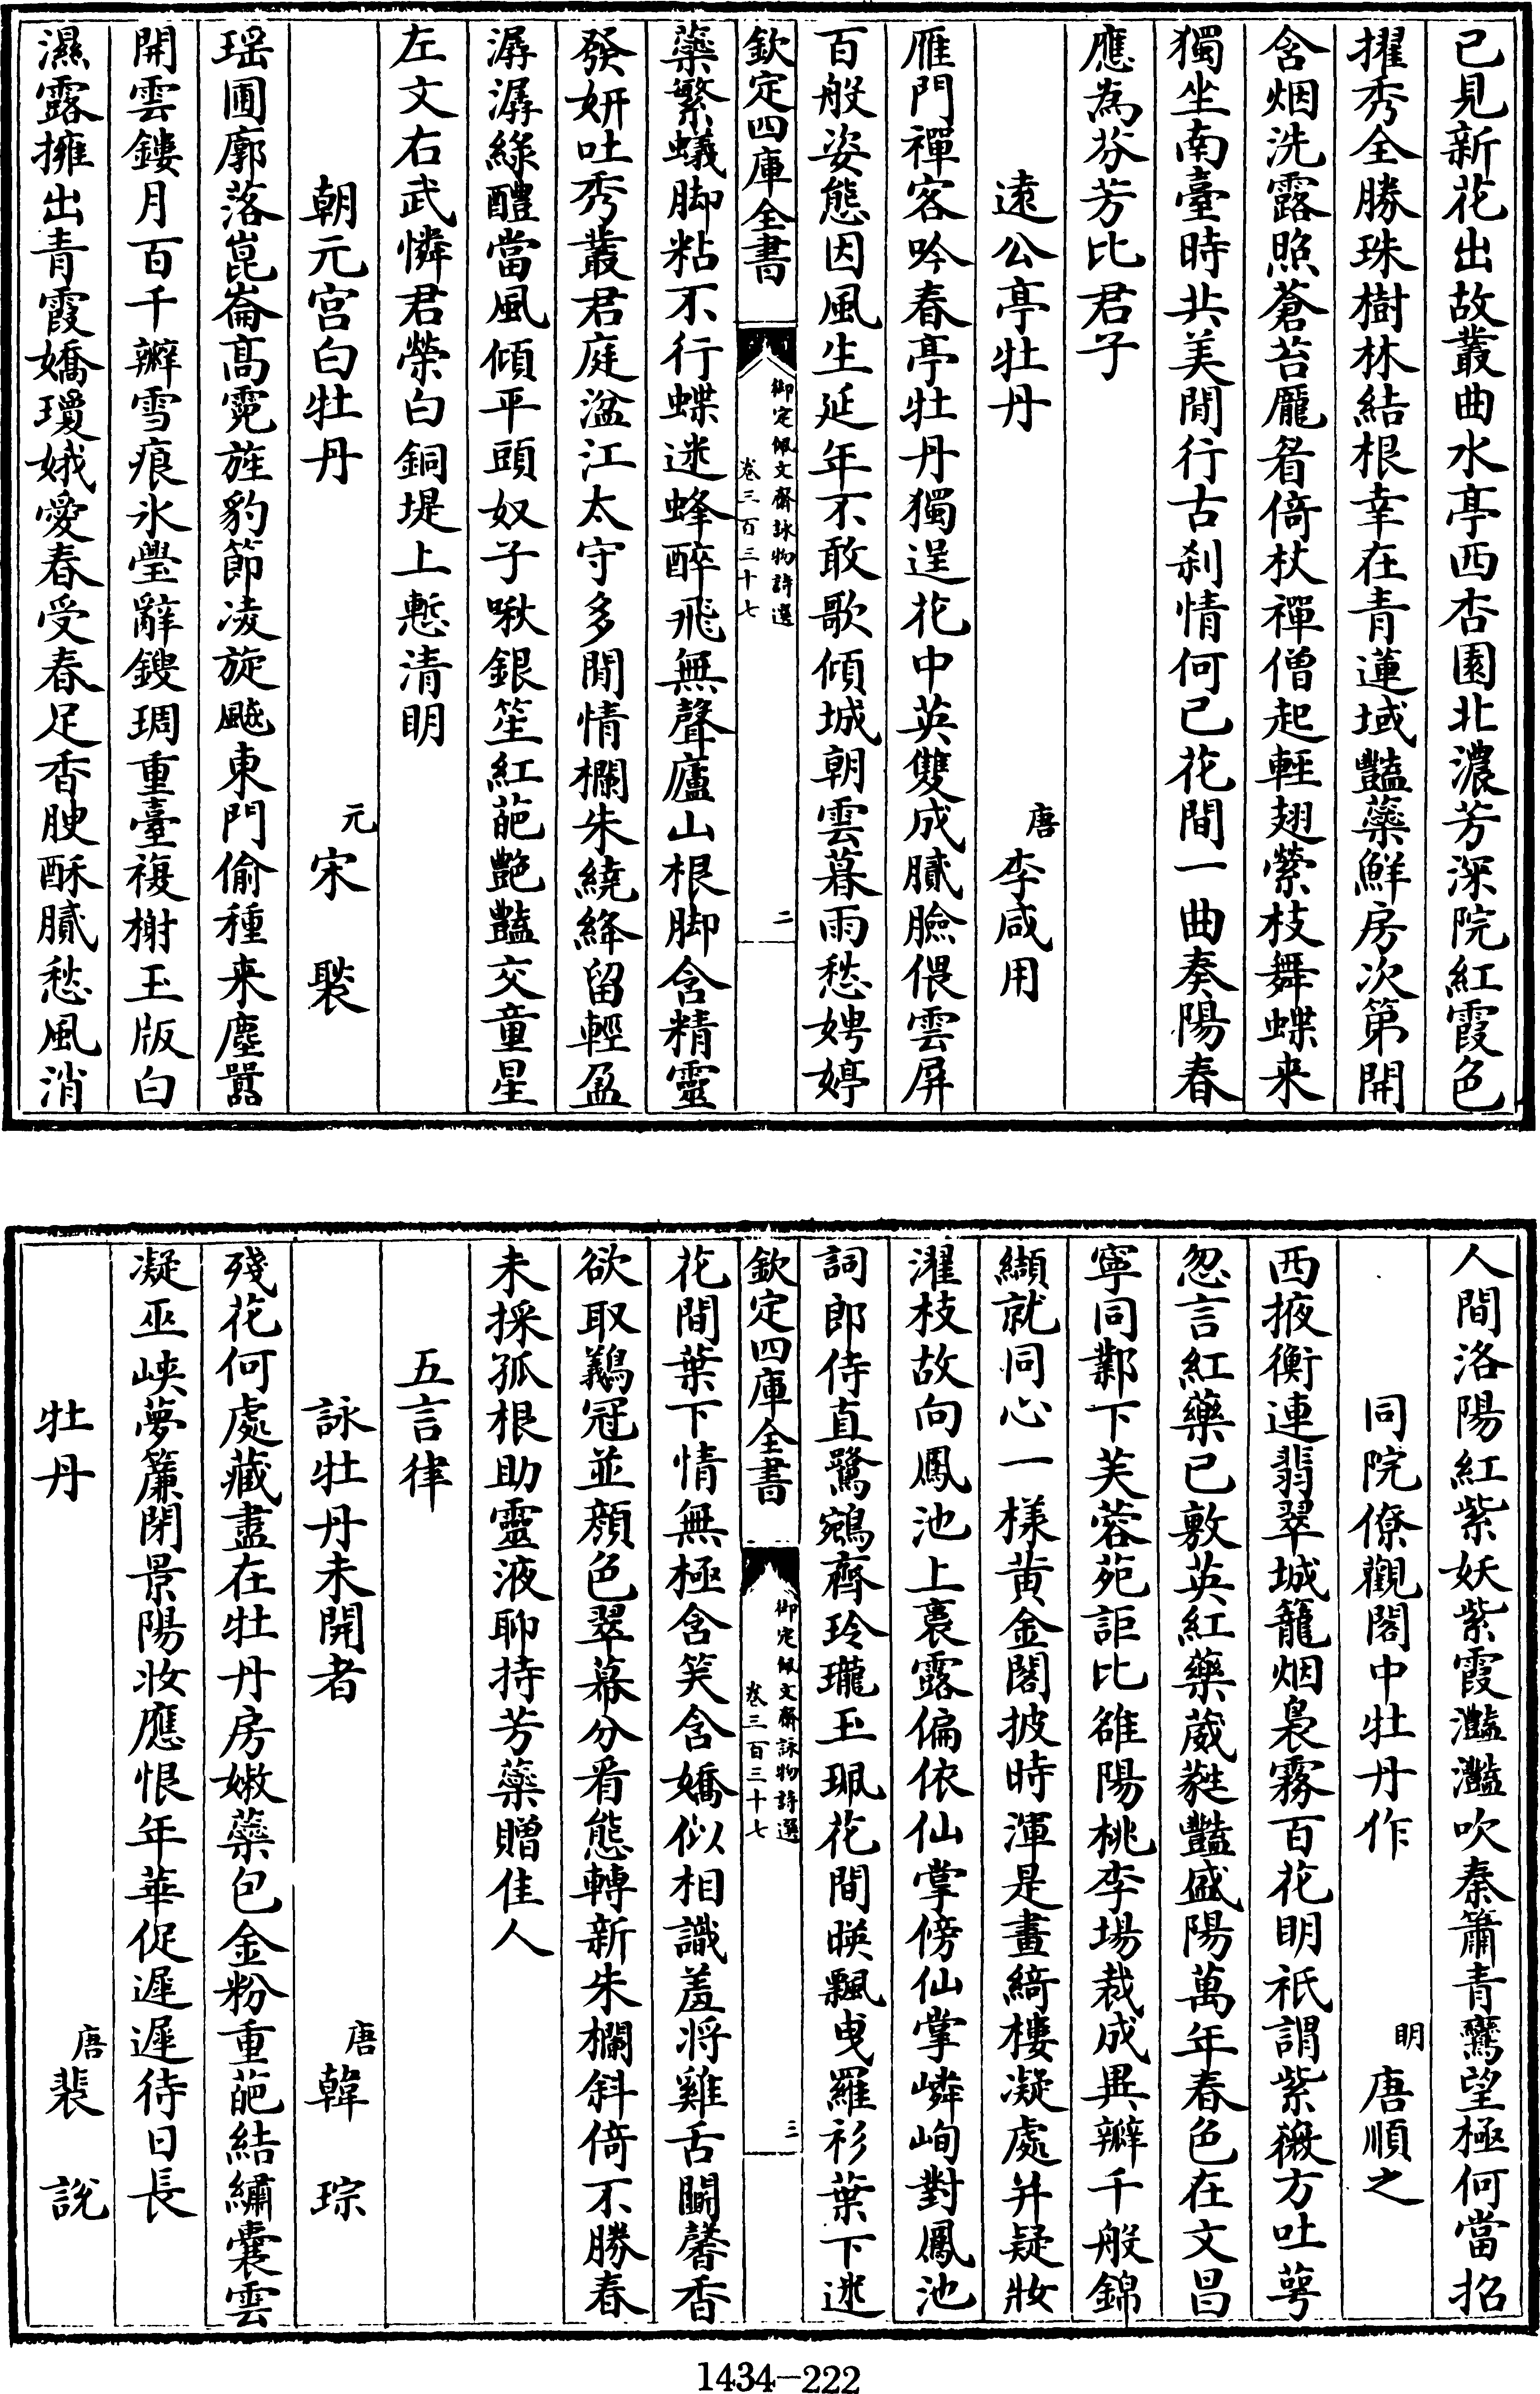 已見新花出故叢曲水亭西杏園北濃芳深院紅霞色
擢秀全勝珠樹林結根幸在青蓮域豔蘂鮮房次第開
含烟洗露照蒼苔龎眉倚杖禪僧起輕翅縈枝舞蝶来
獨坐南臺時共美閒行古刹情何已花間一曲奏陽春
應為芬芳比君子
遠公亭牡丹 唐 李咸用
雁門禪客吟春亭牡丹獨逞花中英雙成膩臉偎雲屏
百般姿態因風生延年不敢歌傾城朝雲暮雨愁娉婷
欽定四庫全書 御定佩文齋詠物詩選 卷三百三十七 二
蘂繁蟻脚粘不行蝶迷蜂醉飛無聲廬山根脚含精靈
發妍吐秀叢君庭湓江太守多閒情欄朱繞絳留輕盈
潺潺綠醴當風傾平頭奴子啾銀笙紅葩艷豔交童星
左文右武憐君榮白銅堤上慙清明
朝元宫白牡丹 元 宋褧
瑶圃廓落崑崙髙霓旌豹節凌旋飈東門偷種来塵囂
開雲鏤月百千瓣雪痕氷壆辭鎪琱重臺複榭玉版白
濕露擁出青霞嬌瓊娥愛春受春足香腴酥膩愁風消
人間洛陽紅紫妖紫霞灩灩吹秦簫青鸞望極何當招
同院僚觀閣中牡丹作 明 唐順之
西掖衡連翡翠城籠烟裊霧百花明祇謂紫薇方吐萼
忽言紅藥已敷英紅藥葳蕤豔盛陽萬年春色在文昌
寧同鄴下芙蓉苑詎比雒陽桃李場裁成異瓣千般錦
纈就同心一様黄金閣披時渾是畫綺樓凝處并疑妝
濯枝故向鳳池上裛露偏依仙掌傍仙掌嶙峋對鳳池
詞郎侍直鷺鵷齊玲瓏玉珮花間暎飄曳羅衫葉下迷
欽定四庫全書 御定佩文齋詠物詩選 卷三百三十七 三
花間葉下情無極含笑含嬌似相識羞将雞舌鬭馨香
欲取鷊冠並顔色翠幕分看態轉新朱欄斜倚不勝春
未採孤根助靈液聊持芳藥贈佳人
五言律
詠牡丹未開者 唐 韓琮
殘花何處藏盡在牡丹房嫩蘂包金粉重葩結繡囊雲
凝巫峽夢簾閉景陽妝應恨年華促遲遲待日長
牡丹 唐 裴說
1434-222